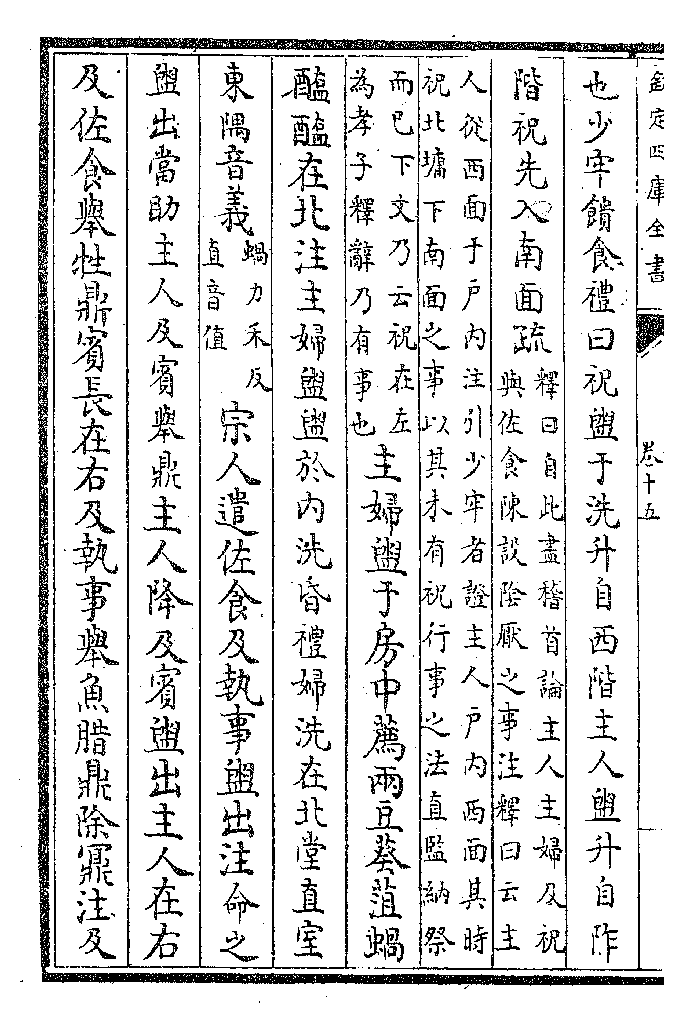 欽定四庫全書
卷十五
也少牢饋食禮曰祝盥于洗升自西階主人盥升自阼
階祝先入南面疏
釋曰自此盡稽首論主人主婦及祝
與佐食陳設陰厭之事注釋曰云主
人從西面于戶内注引少牢者證主人戶内西面其時
祝北墉下南面之事以其未有祝行事之法直監納祭
而已下文乃云祝在左
為孝子釋辭乃有事也
主婦盥于房中薦兩豆葵菹蝸
醢醢在北注主婦盥盥於内洗昏禮婦洗在北堂直室
東隅音義
蝸力禾反
直音值
宗人遣佐食及執事盥出注命之
盥出當助主人及賓舉鼎主人降及賓盥出主人在右
及佐食舉牲鼎賓長在右及執事舉魚腊鼎除鼏注及